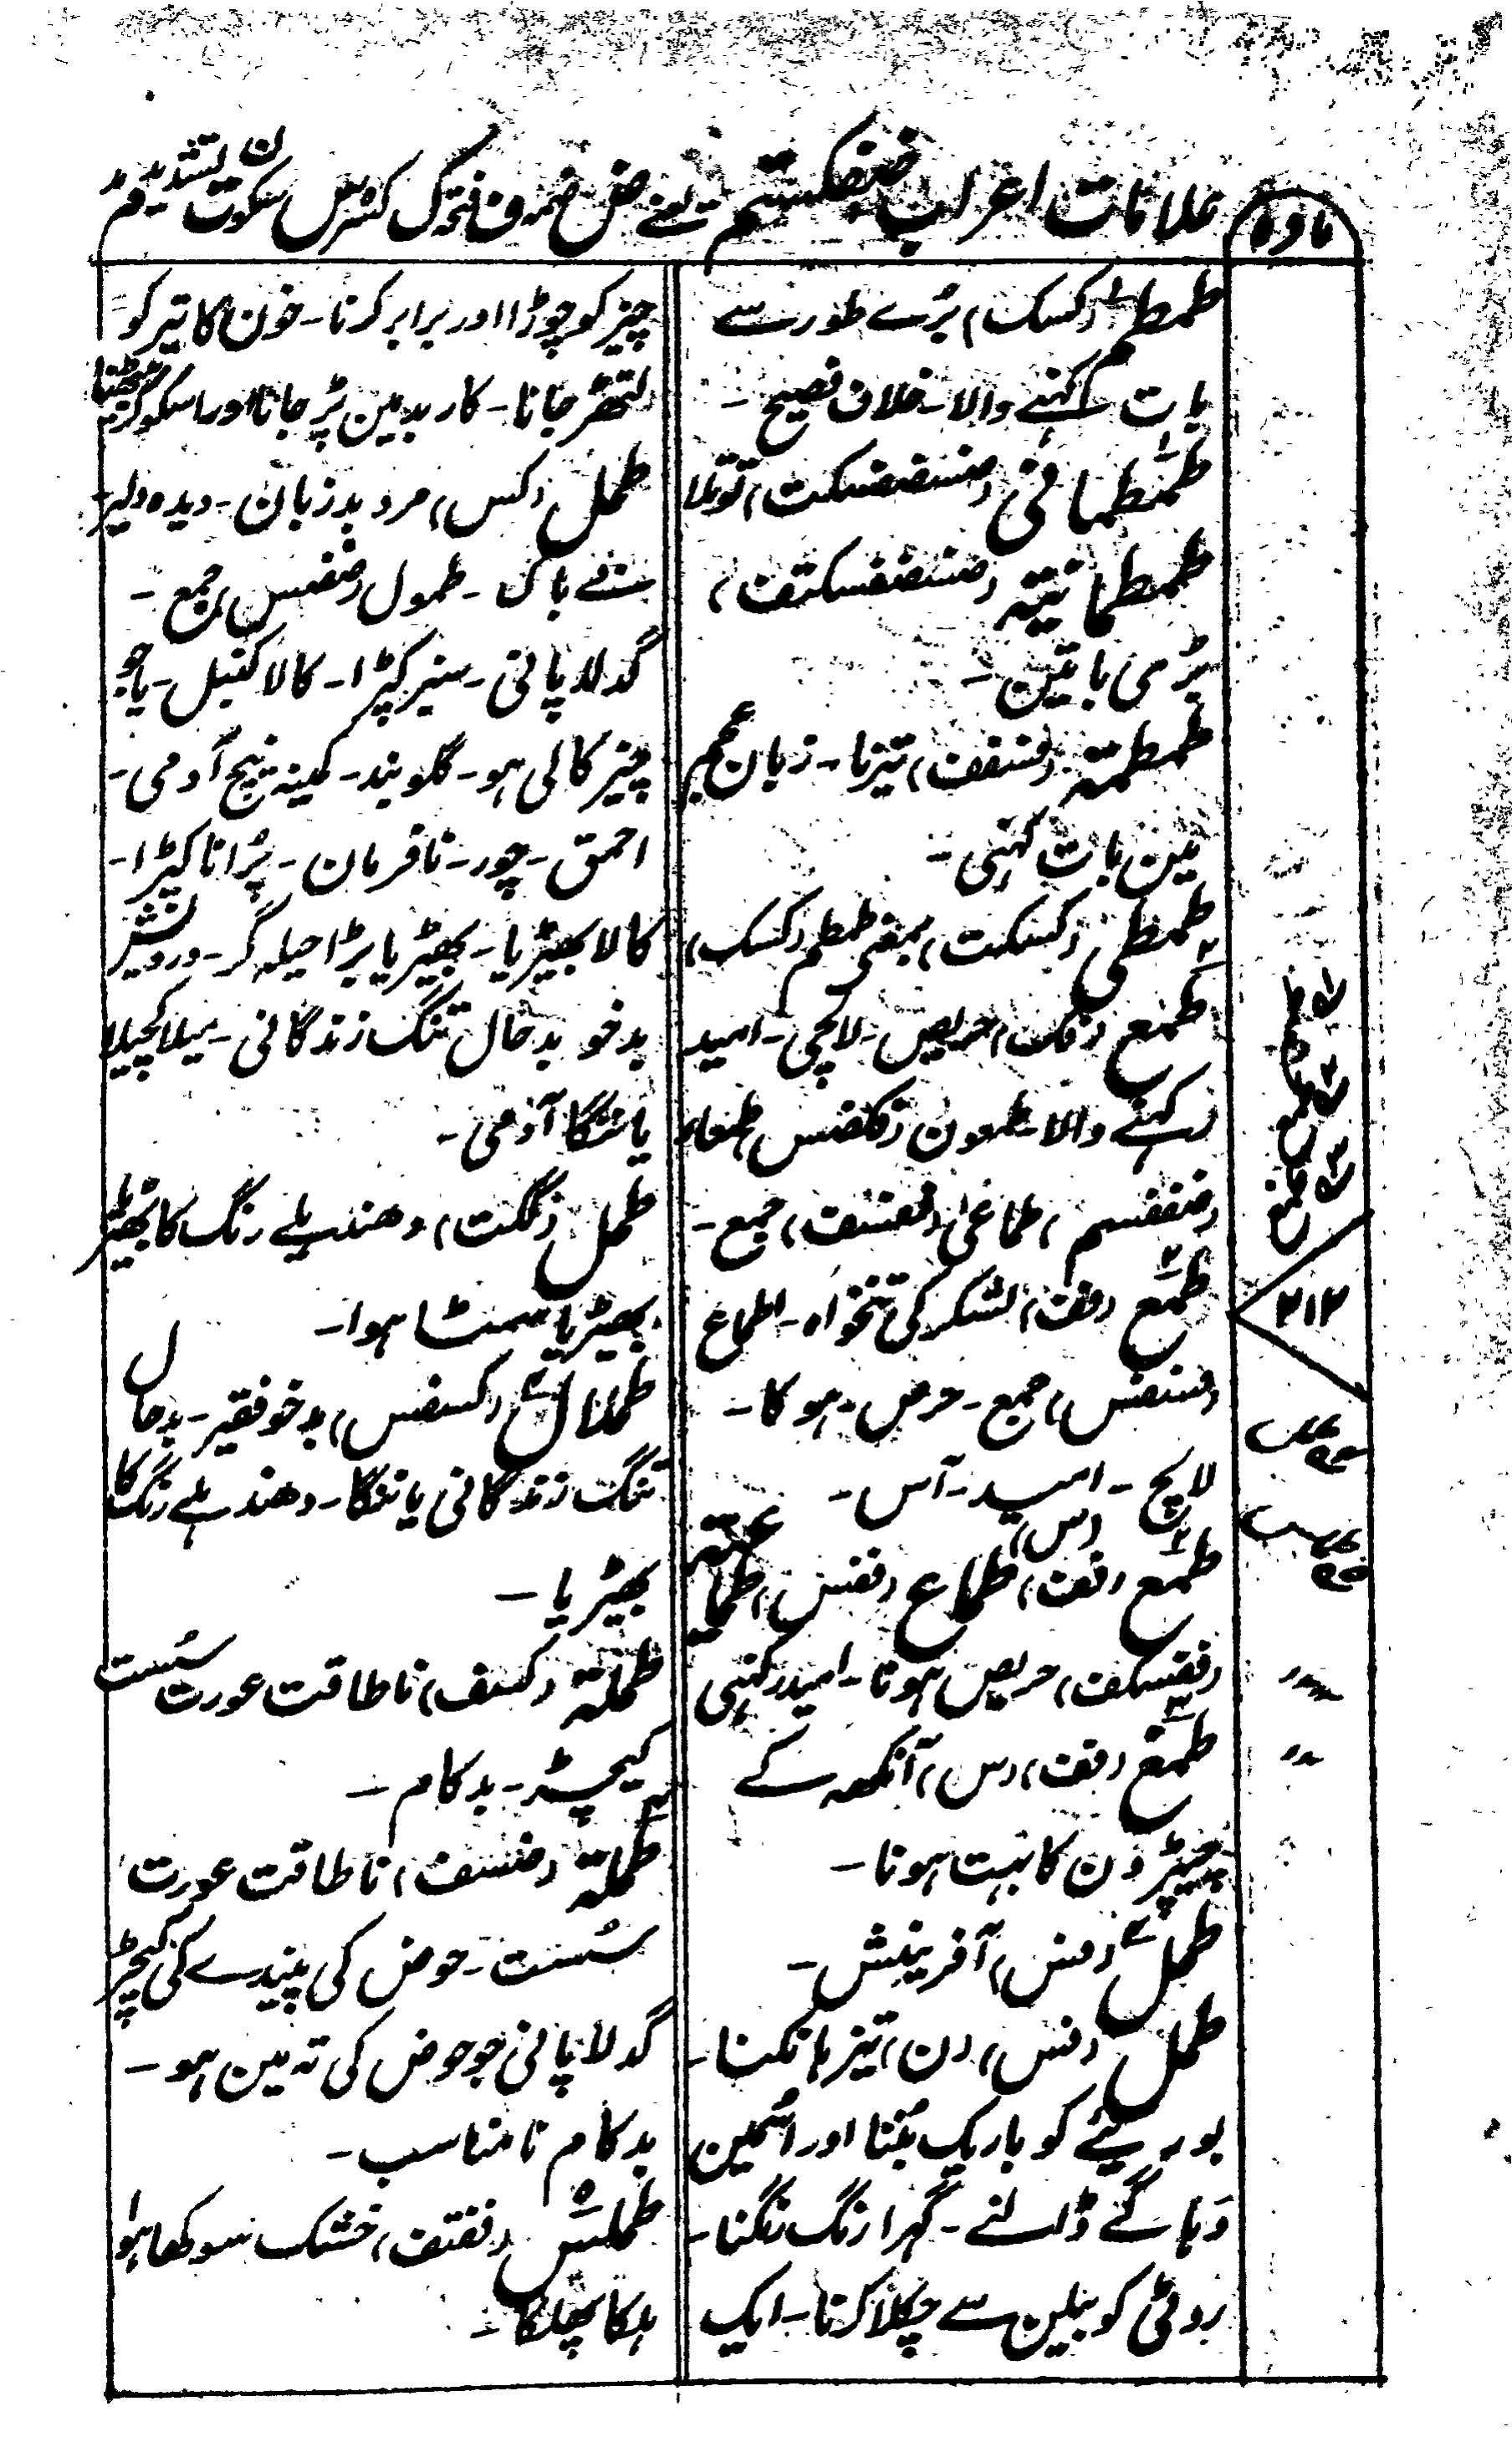 مادہ
علامات اعراب ضفکستم یعنے ض ضمہ ف فتحہ ک کسرہ س سکون ت تشدید م مد
طمطم (کسک) بُرے طور سے
بات کہنے والا۔ خلاف فصیح۔
طمطمانی (ضسضفسکت) توتلا
طمطمانیتہ (ضسضفسکتف)
بڑی باتین۔
طمطمتہ (فسففف) تیزنا۔ زبان عجم
مین بات کہنی۔
طمطمی (کسکت) بمعنی طمطم (کسک)
طمع (فک) حریص۔ لالچی۔ امید
رکہنے والا۔ طمعون (فکضس) طمعاء
(ضففسم) طماعی (ففسف) جمع۔
طمع (فف) لشکر کی تنخواہ۔ اطماع
(فسفس) جمع۔ حرص۔ ہوکا۔
لالچ۔ امید۔ آس۔
طمع (فف) (س) طماع (ففس) طماعتہ
(ففسکف) حریص ہونا۔ امید رکہنی
طمع (فف) (س) آنکھہ کے
چیپڑون کا بہت ہونا۔
طمل (فس) آفرینش۔
طمل (فس) (ن) تیز ہانکنا۔
بوریئے کو باریک بُننا اور اسمین
دہاگے ڈالنے۔ گہرا رنگ رنگنا۔
روٹی کو بیلن سے چکلا کرنا۔ ایک
چیز کو چوڑا اور برابر کرنا۔ خون کا تیر کو
لتھڑ جانا۔ کار بد مین پڑ جانا اور اسکو
طمل (کس) مرد بدزبان۔ دیدہ دلیر۔
بے باک۔ طمول (ضضس) جمع۔
گدلا پانی۔ سبز کپڑا۔ کالا کنبل۔ یا جو
چیز کالی ہو۔ گلوبند۔ کمینہ نیچ آدمی۔
احمق۔ چور۔ نافرمان۔ پُرانا کپڑا۔
کالا بھیڑیا۔ بھیڑیا بڑا حیلہ گر۔ درویش
بدخو بدحال تنگ زندگانی۔ میلا کچیلا
یا ننگا آدمی۔
طمل (فکت) دھندیلے رنگ کا بھیڑیا
بھیڑیا سمٹا ہوا۔
طملال (کسفس) بدخو فقیر۔ بدحال
تنگ زندگانی یا ننگا۔ دھندیلے رنگ کا
بھیڑیا۔
طملتہ (کسف) ناطاقت عورت سُست
کیچڑ۔ بدکام۔
طملتہ (ضسف) ناطاقت عورت
سُست۔ حوض کی پیندے کی کیچڑ
گدلا پانی جو حوض کی تہ مین ہو۔
بدکام نامناسب۔
طملس (ففتف) خشک سوکھا ہوا
ہلکا پھلکا۔
۲۱۲